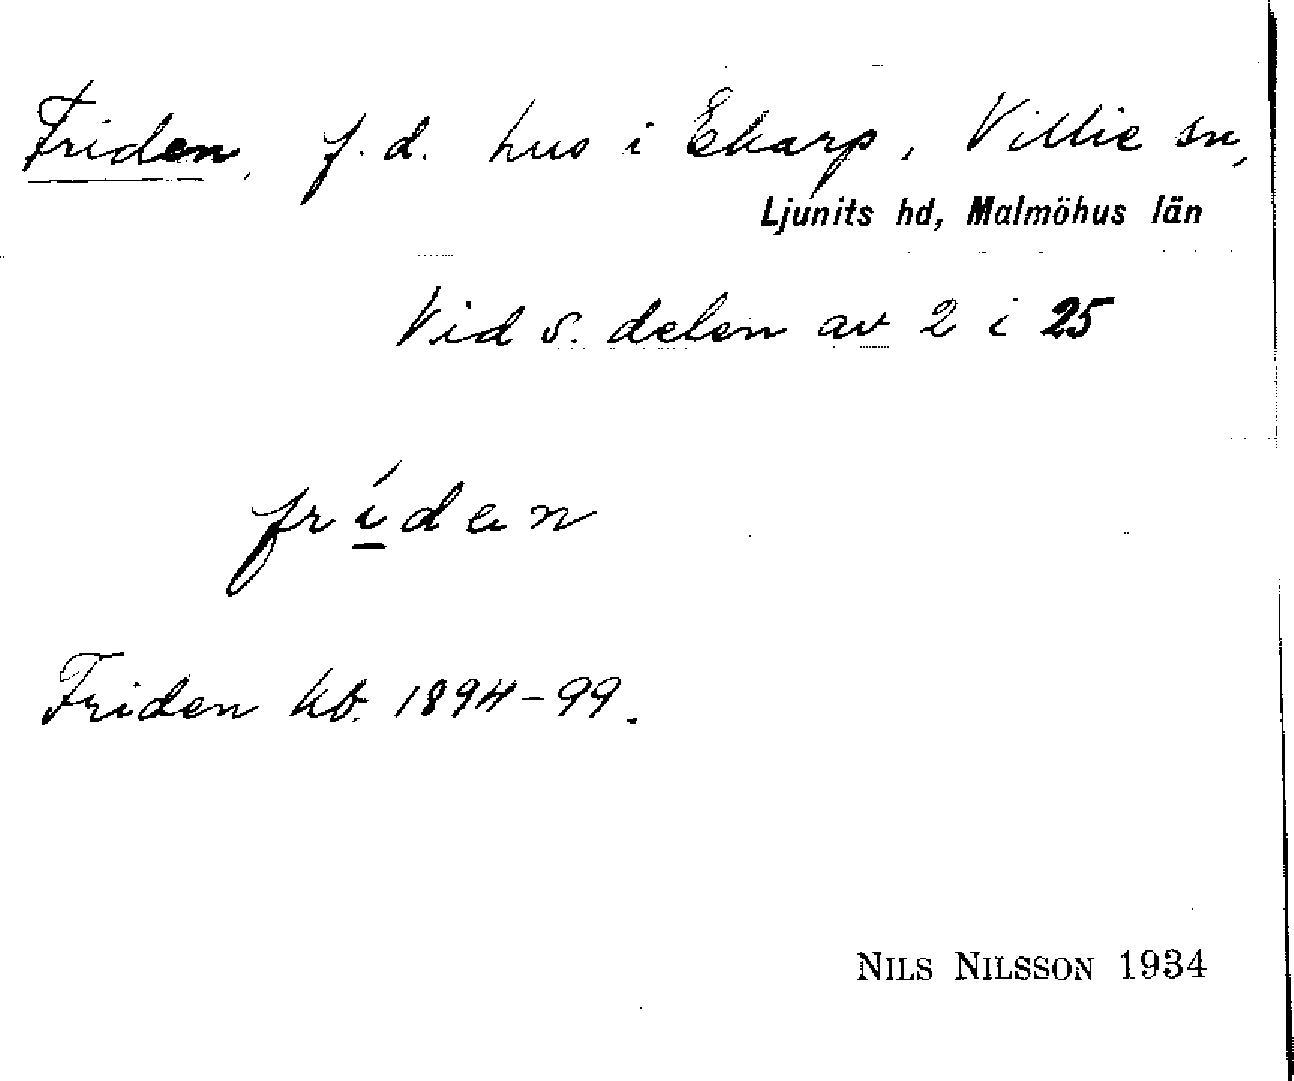 Friden, f.d. hus i Ekarp, Villie sn,
Ljunits hd, Malmöhus län
Vid s. delen av 2 i 25
fríden
Friden kb. 1894-99.
NILS NILSSON 1934